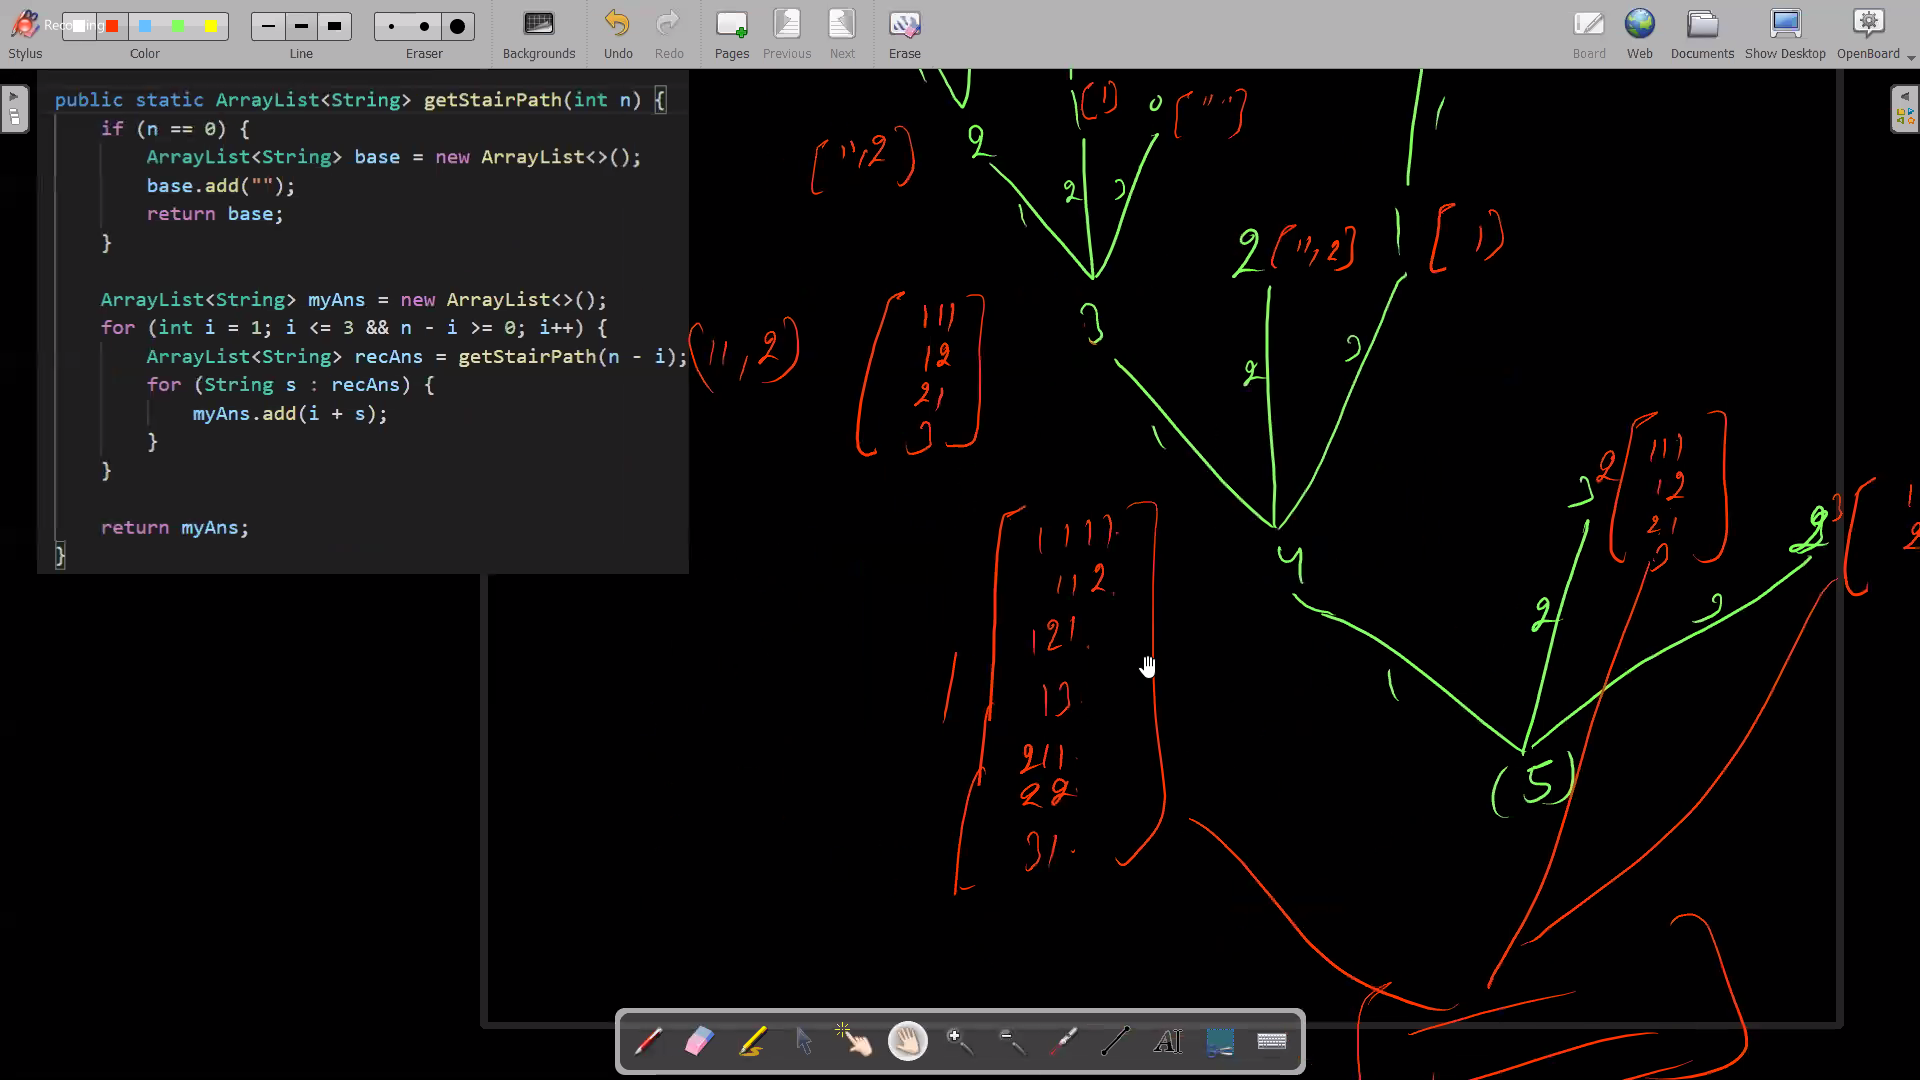 Recording
Stylus
Color
Line
Eraser
Backgrounds
Undo
Redo
Pages
Previous
Next
Erase
Board
Web
Documents
Show Desktop
OpenBoard
public static ArrayList<String> getStairPath(int n) {
if (n == 0) {
ArrayList<String> base = new ArrayList<>();
base.add("");
return base;
}
ArrayList<String> myAns = new ArrayList<>();
for (int i = 1; i <= 3 && n - i >= 0; i++) {
ArrayList<String> recAns = getStairPath(n - i);
for (String s : recAns) {
myAns.add(i + s);
}
}
return myAns;
}
[11,2]
2
1
[1]
0
[""]
1
2
3
3
[11,2]
111
12
21
3
2
[11,2]
1
[1]
1
1
2
3
4
1111
112
121
13
211
22
31
1
3
2
111
12
21
3
2
3
1
2
1
2
3
(5)
AI